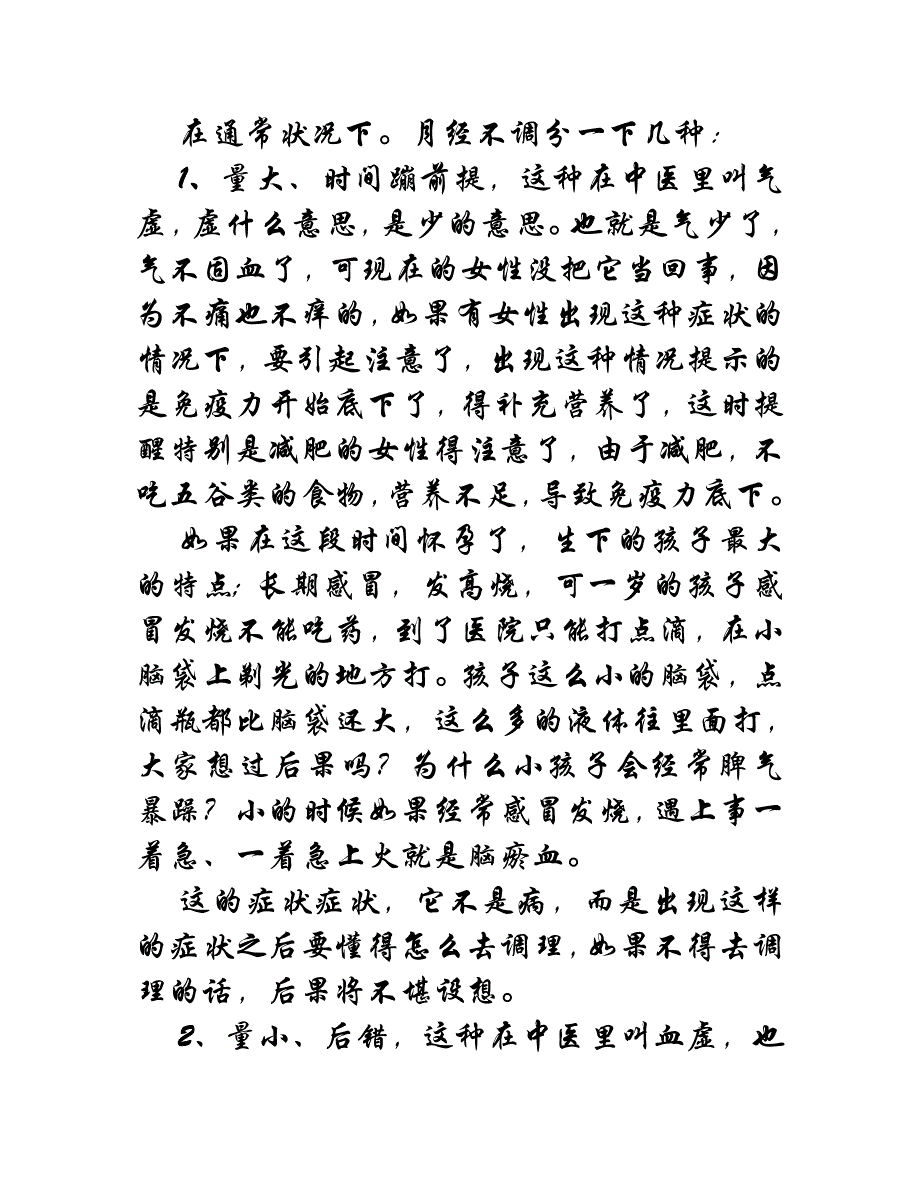 在通常状况下。月经不调分一下几种：
1、量大、时间蹦前提，这种在中医里叫气
虚，虚什么意思，是少的意思。也就是气少了，
气不固血了，可现在的女性没把它当回事，因
为不痛也不痒的，如果有女性出现这种症状的
情况下，要引起注意了，出现这种情况提示的
是免疫力开始底下了，得补充营养了，这时提
醒特别是减肥的女性得注意了，由于减肥，不
吃五谷类的食物，营养不足，导致免疫力底下。
如果在这段时间怀孕了，生下的孩子最大
的特点；长期感冒，发高烧，可一岁的孩子感
冒发烧不能吃药，到了医院只能打点滴，在小
脑袋上剃光的地方打。孩子这么小的脑袋，点
滴瓶都比脑袋还大，这么多的液体往里面打，
大家想过后果吗？为什么小孩子会经常脾气
暴躁？小的时候如果经常感冒发烧，遇上事一
着急、一着急上火就是脑瘀血。
这的症状症状，它不是病，而是出现这样
的症状之后要懂得怎么去调理，如果不得去调
理的话，后果将不堪设想。
2、量小、后错，这种在中医里叫血虚，也